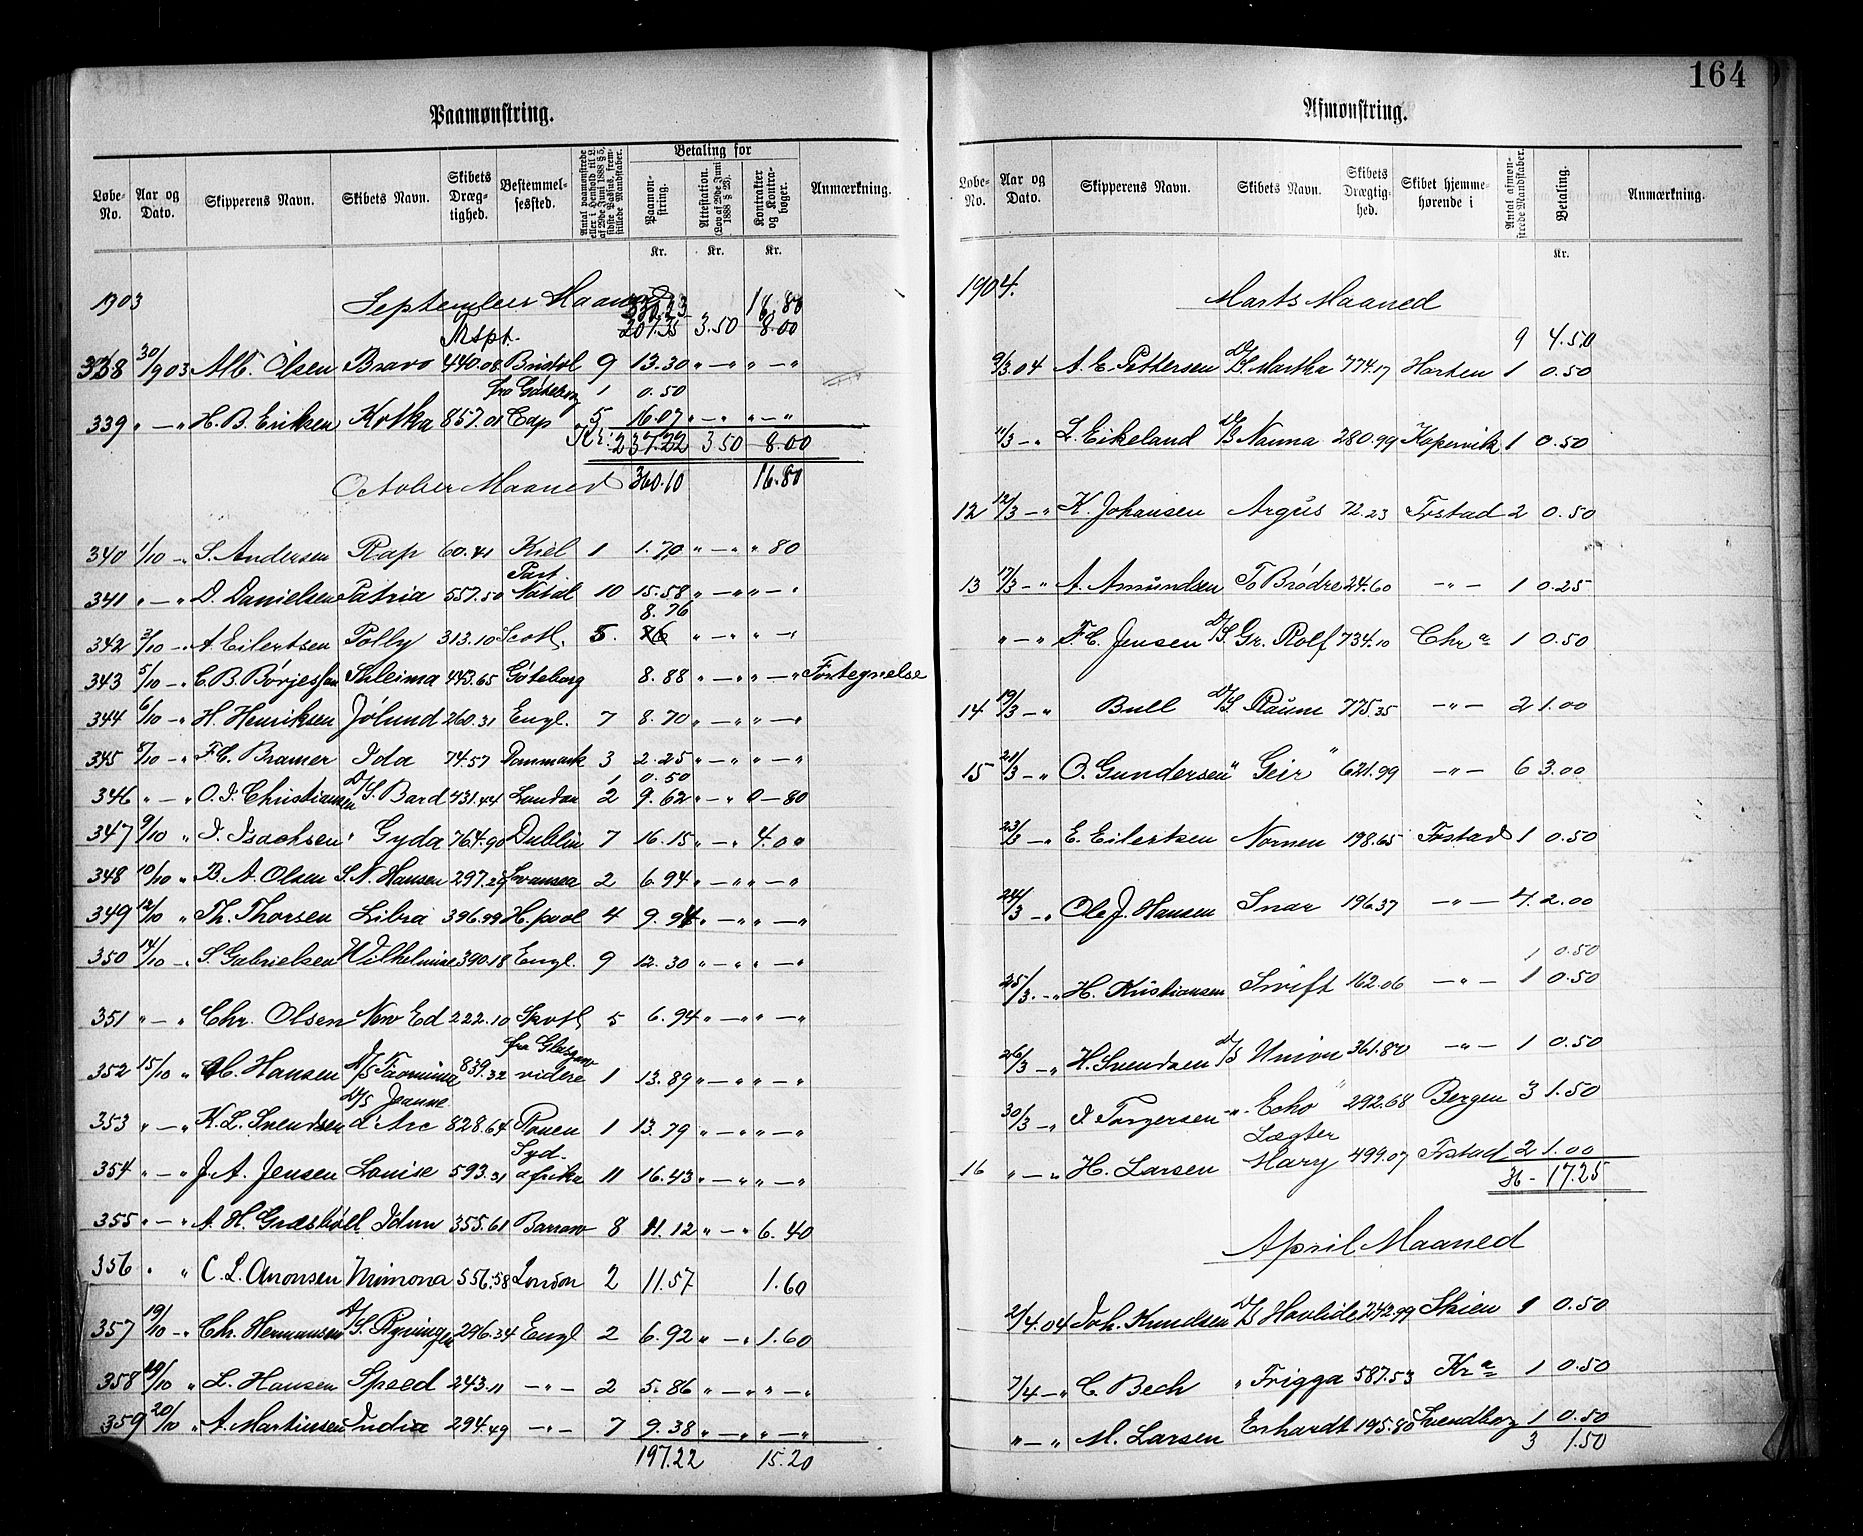 164
Paamønstring.
Løbe-No. Aar og Dato. Skipperens Navn. Skibets Navn. Skibets Dræg-tighed. Bestemmel-sessted. Antal paamønstrede eller i Henhold til L. af 29de Juni 1888 § 5, sidste Passus, frem-stillede Mandskaber. Betaling for Paamøn-string. Attestation. (Lov af 29de Juni 1888 § 25). Kontrakter og Kontra-bøger. Anmærkning.
Kr. Kr. Kr.
1903 September Maaned 16.80
Mspt. 207.35 3.50 8.00
338 30/9 03 Alb. Olsen Bravo 440.08 Bristol 9 13.30 " — " " — "
fra Göteborg 1 0.50
339 " — " H. B. Eriksen Kotka 857.01 Cap 5 16.07 " — " " — "
Kr: 237.22 3.50 8.00
October Maaned 360.10 16.80
340 1/10 — " S. Andersen Rap 60.41 Kiel 1 1.70 " — " " 80
341 " — " D. Danielsen Patria 557.50 Port Natal 10 15.58 " — " " — "
8.76
342 3/10 — " A. Eilertsen Polly 313.10 Scotl. 5. " — " " — "
343 5/10 — " C. B. Börjesson Suleima 443.65 Göteborg 8.88 " — " " — " Fortegnelse
344 6/10 — " H. Henriksen Jølund 260.31 Engl. 7 8.70 " — " " — "
345 8/10 — " F. C. Bramer Ida 74.57 Danmark 3 2.25 " — " " — "
1 0.50
346 " — " O. J. Christiansen D/S. Bard 431.44 London 2 9.62 " — " 0 — 80
347 9/10 " I. Isachsen " Gyda 764.90 Dublin 7 16.15 " — " 4.00
348 10/10 " B. A. Olsen S. N. Hansen 297.29 Svansea 2 6.94 " — " " — "
349 12/10 " Th. Thorsen Libra 396.99 H. pool 4 9.94 " — " " — "
350 14/10 — " S. Gabrielsen Wilhelmine 390.18 Engl. 9 12.30 " — " " — "
351 " — " Chr. Olsen New Ed 222.10 Skotl 5 6.94 " — " " — "
352 15/10 " C. Hansen D/S Taormina 839.32 fra Glasgow videre 1 13.89 " — " " — "
353 " — " K. L. Svendsen D/S Jeanne d'Arc 828.64 Rouen 1 13.79 " — " " — "
354 " — " J. A. Jensen Louise 593.31 Syd-afrika 11 16.43 " — " " — "
355 " — " A. H. Græsböll Idun 355.61 Barrow 8 11.12 " — " 6.40
356 " " C. L. Aronsen Mimona 556.58 London 2 11.57 1.60
357 19/10 — " Chr. Hermansen D/S. Ryvingen 296.34 Engl 2 6.92 " — " 1.60
358 20/10 " L. Hansen Speed 243.11 — " — 2 5.86 " — " " — "
359 20/10 " A. Martinsen India 294.49 — " — 7 9.38 " — " " — "
197.22 15.20
Afmønstring.
Løbe-No. Aar og Dato. Skipperens Navn. Skibets Navn. Skibets Drægtig-hed. Skibet hjemme-hørende i Antal afmøn-strede Mandskaber. Betaling. Anmærkning.
Kr.
1904. Marts Maaned
9 4.50
9/3.04 A. E. Pettersen D/S. Martha 774.17 Horten 1 0.50
11/3 — " L. Eikeland D/S Nanna 280.99 Kopervik 1 0.50
12 12/3 — " K. Johansen Argus 72.23 Frstad 2 0.50
13 17/3 — " A. Amundsen To Brödre 24.60 — " — 1 0.25
" — " F. C. Jensen D/S. Gr. Rolf 734.10 Chr a 1 0.50
14 19/3 — " Bull D/S. Raume 775.35 — " — 2 1.00
15 21/3 — " O. Gundersen " Geir " 621.99 — " — 6 3.00
23/3 — " E. Eilertsen Nornen 198.65 Frstad 1 0.50
24/3 — " Ole J. Hansen Snar 196.37 — " — 4. 2.00
1 0.50
25/3. — " H. Kristiansen Swift 162.06 — " — 1 0.50
26/3 — " H. Svendsen D/S Union 361.80 — " — 1 0.50
30/3 — " I. Torgersen — " Echo " 292.68 Bergen 3 1.50
16 " — " H. Larsen Lægter Mary 499.07 Frstad 2 1.00
36 — 17.25
April Maaned
2/4.04 Joh. Knudsen D/S Havlide 242.99 Skien 1 0.50
7/4 — " C. Bech " Frigga 587.53 Kr a 1 0.50
" — " M. Larsen Erhardt 195.80 Svendborg 1 0.50
3 1.50